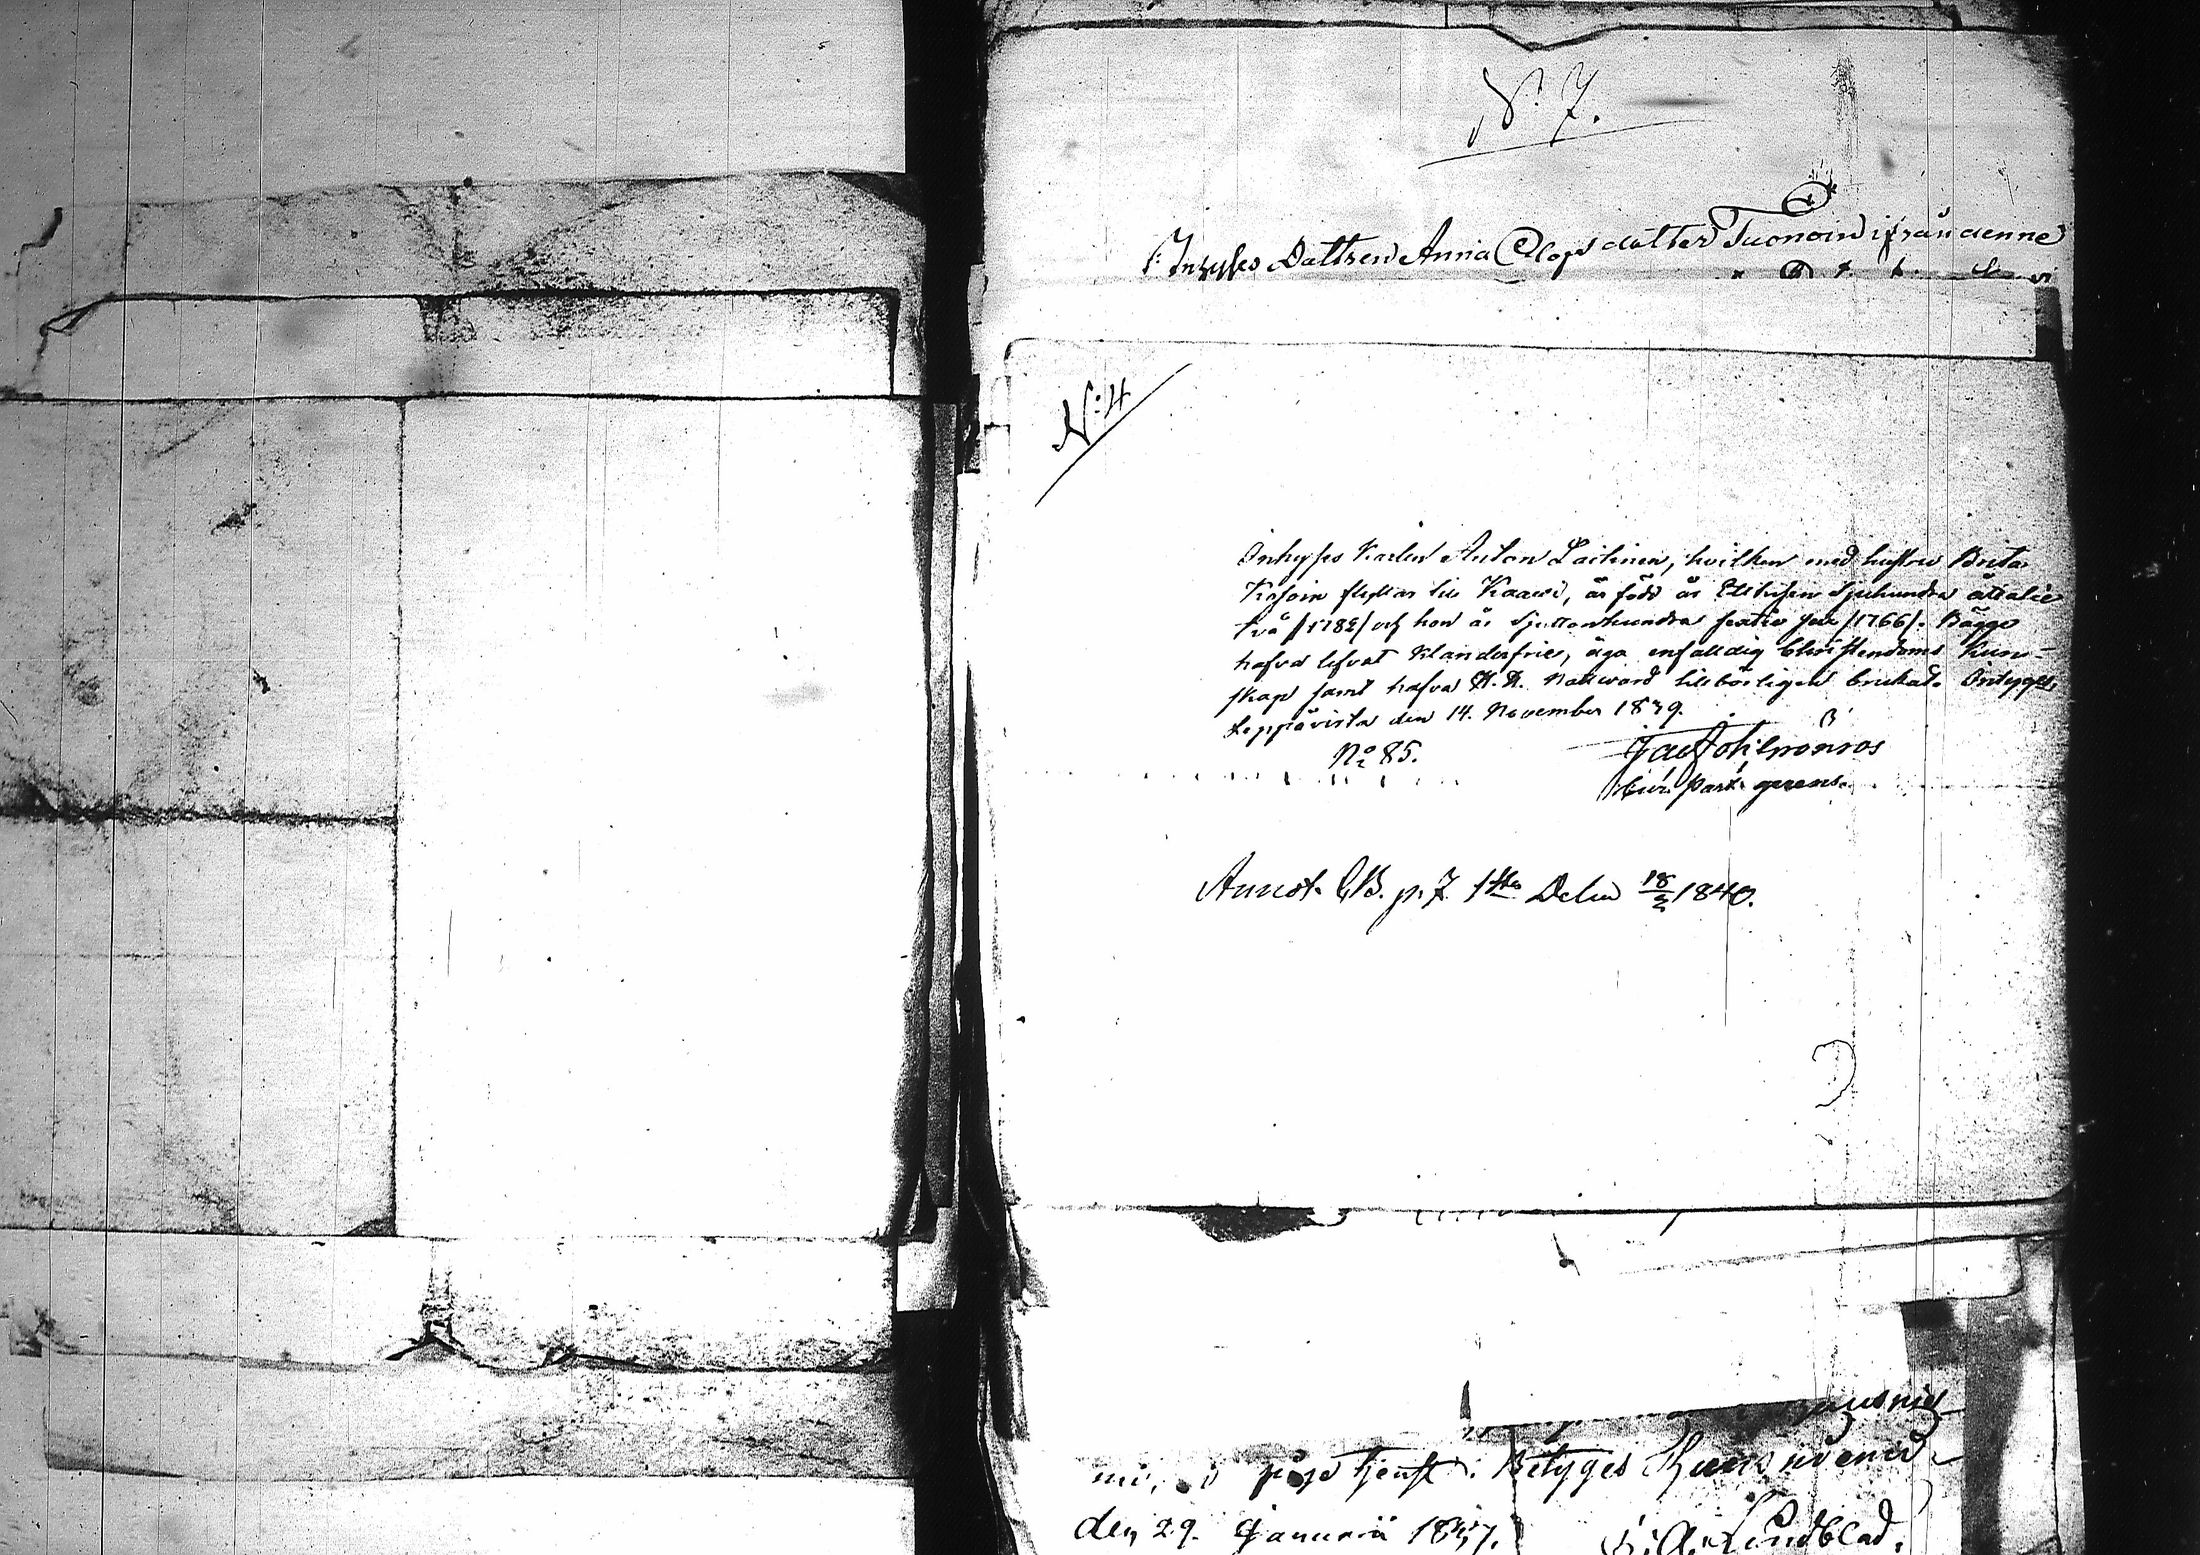 N:o 7.
Inhyses Dottren Anna Olofsdotter Tuonoin ifrån denne
N:4
Inhyses Karlen Anton Laitinen, hvilken med hustru Brita
flyttar till Kaawi, är född år Ettusen Sjuhundra åttatio
två /1782/ och hon år Sjuttonhundra sextio sex /1766/. Bägge
hafva lefvat klanderfrie, äga enfalldig Christendoms Kun-
skap samt hafva H. H. Nattward tillbörligen brukat. Intygas
Leppävirta den 14. November 1839.
No 85.
Past. gerens.
Annot. CB. p. 7 1sta Delen 18/2 1840.
tjenst. Betyges
den 29. Januarii 1837. Lindblad.